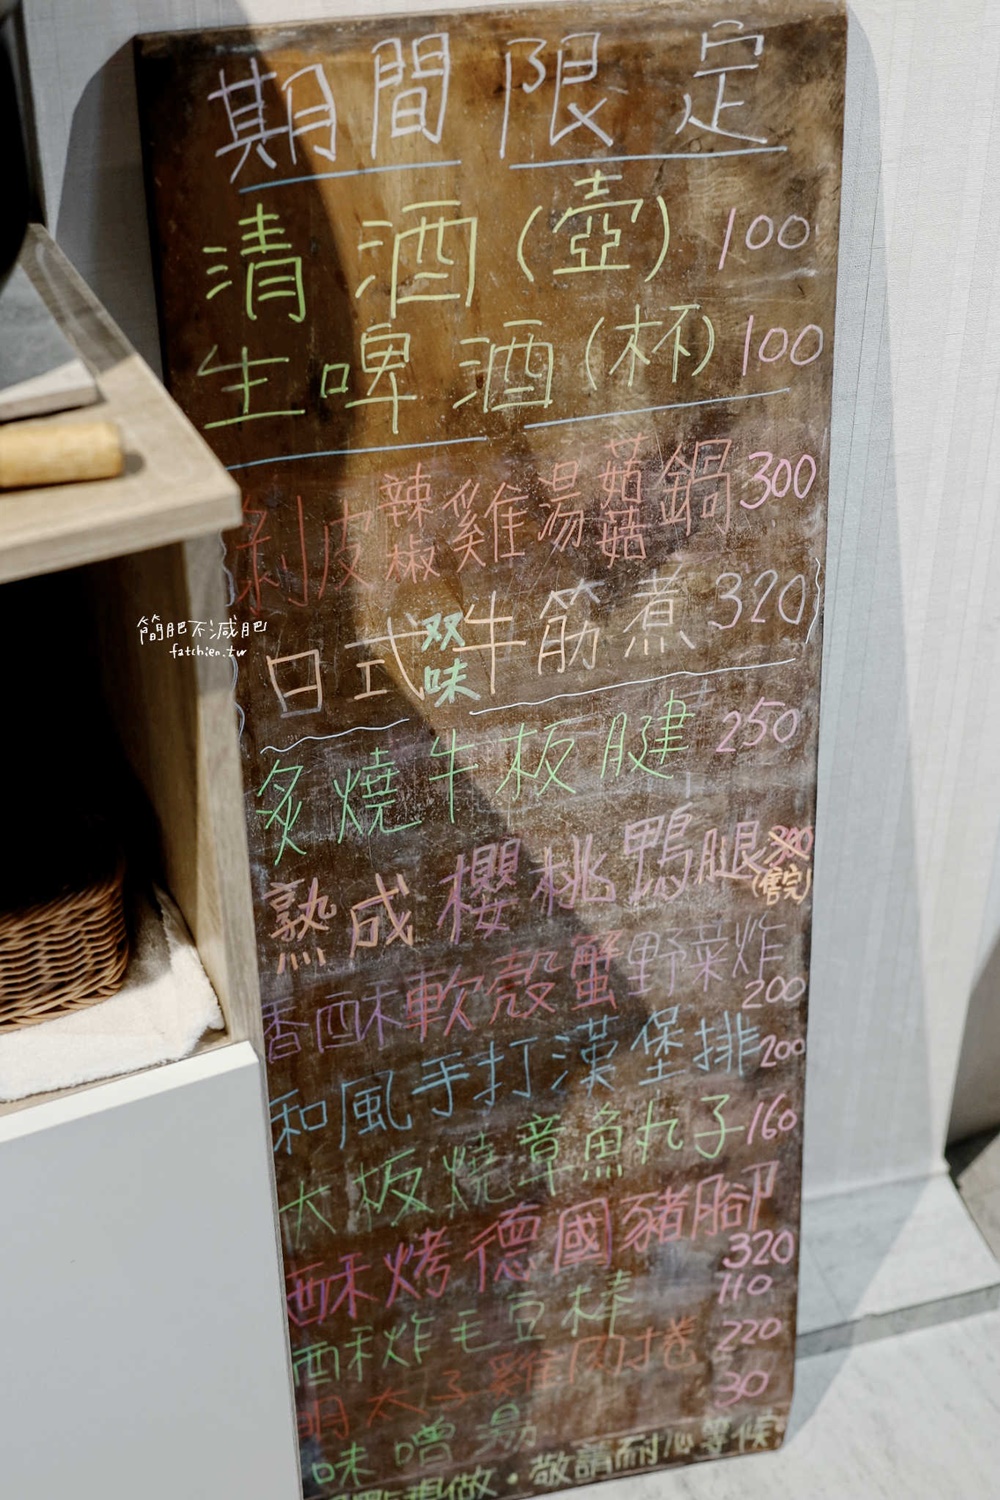 期間限定
清酒(壺) 100
生啤酒(杯) 100
剝皮辣椒雞湯菇菇鍋 300
日式双味牛筋煮 320
簡肥不減肥
fatchien.tw
炙燒牛板腱 250
熟成櫻桃鴨腿 300
(售完)
香酥軟殼蟹野菜炸
200
和風手打漢堡排 200
大板燒章魚丸子 160
酥烤德國豬腳
320
酥炸毛豆棒 110
明太子雞肉捲 220
味噌湯 30
點現做・敬請耐心等候